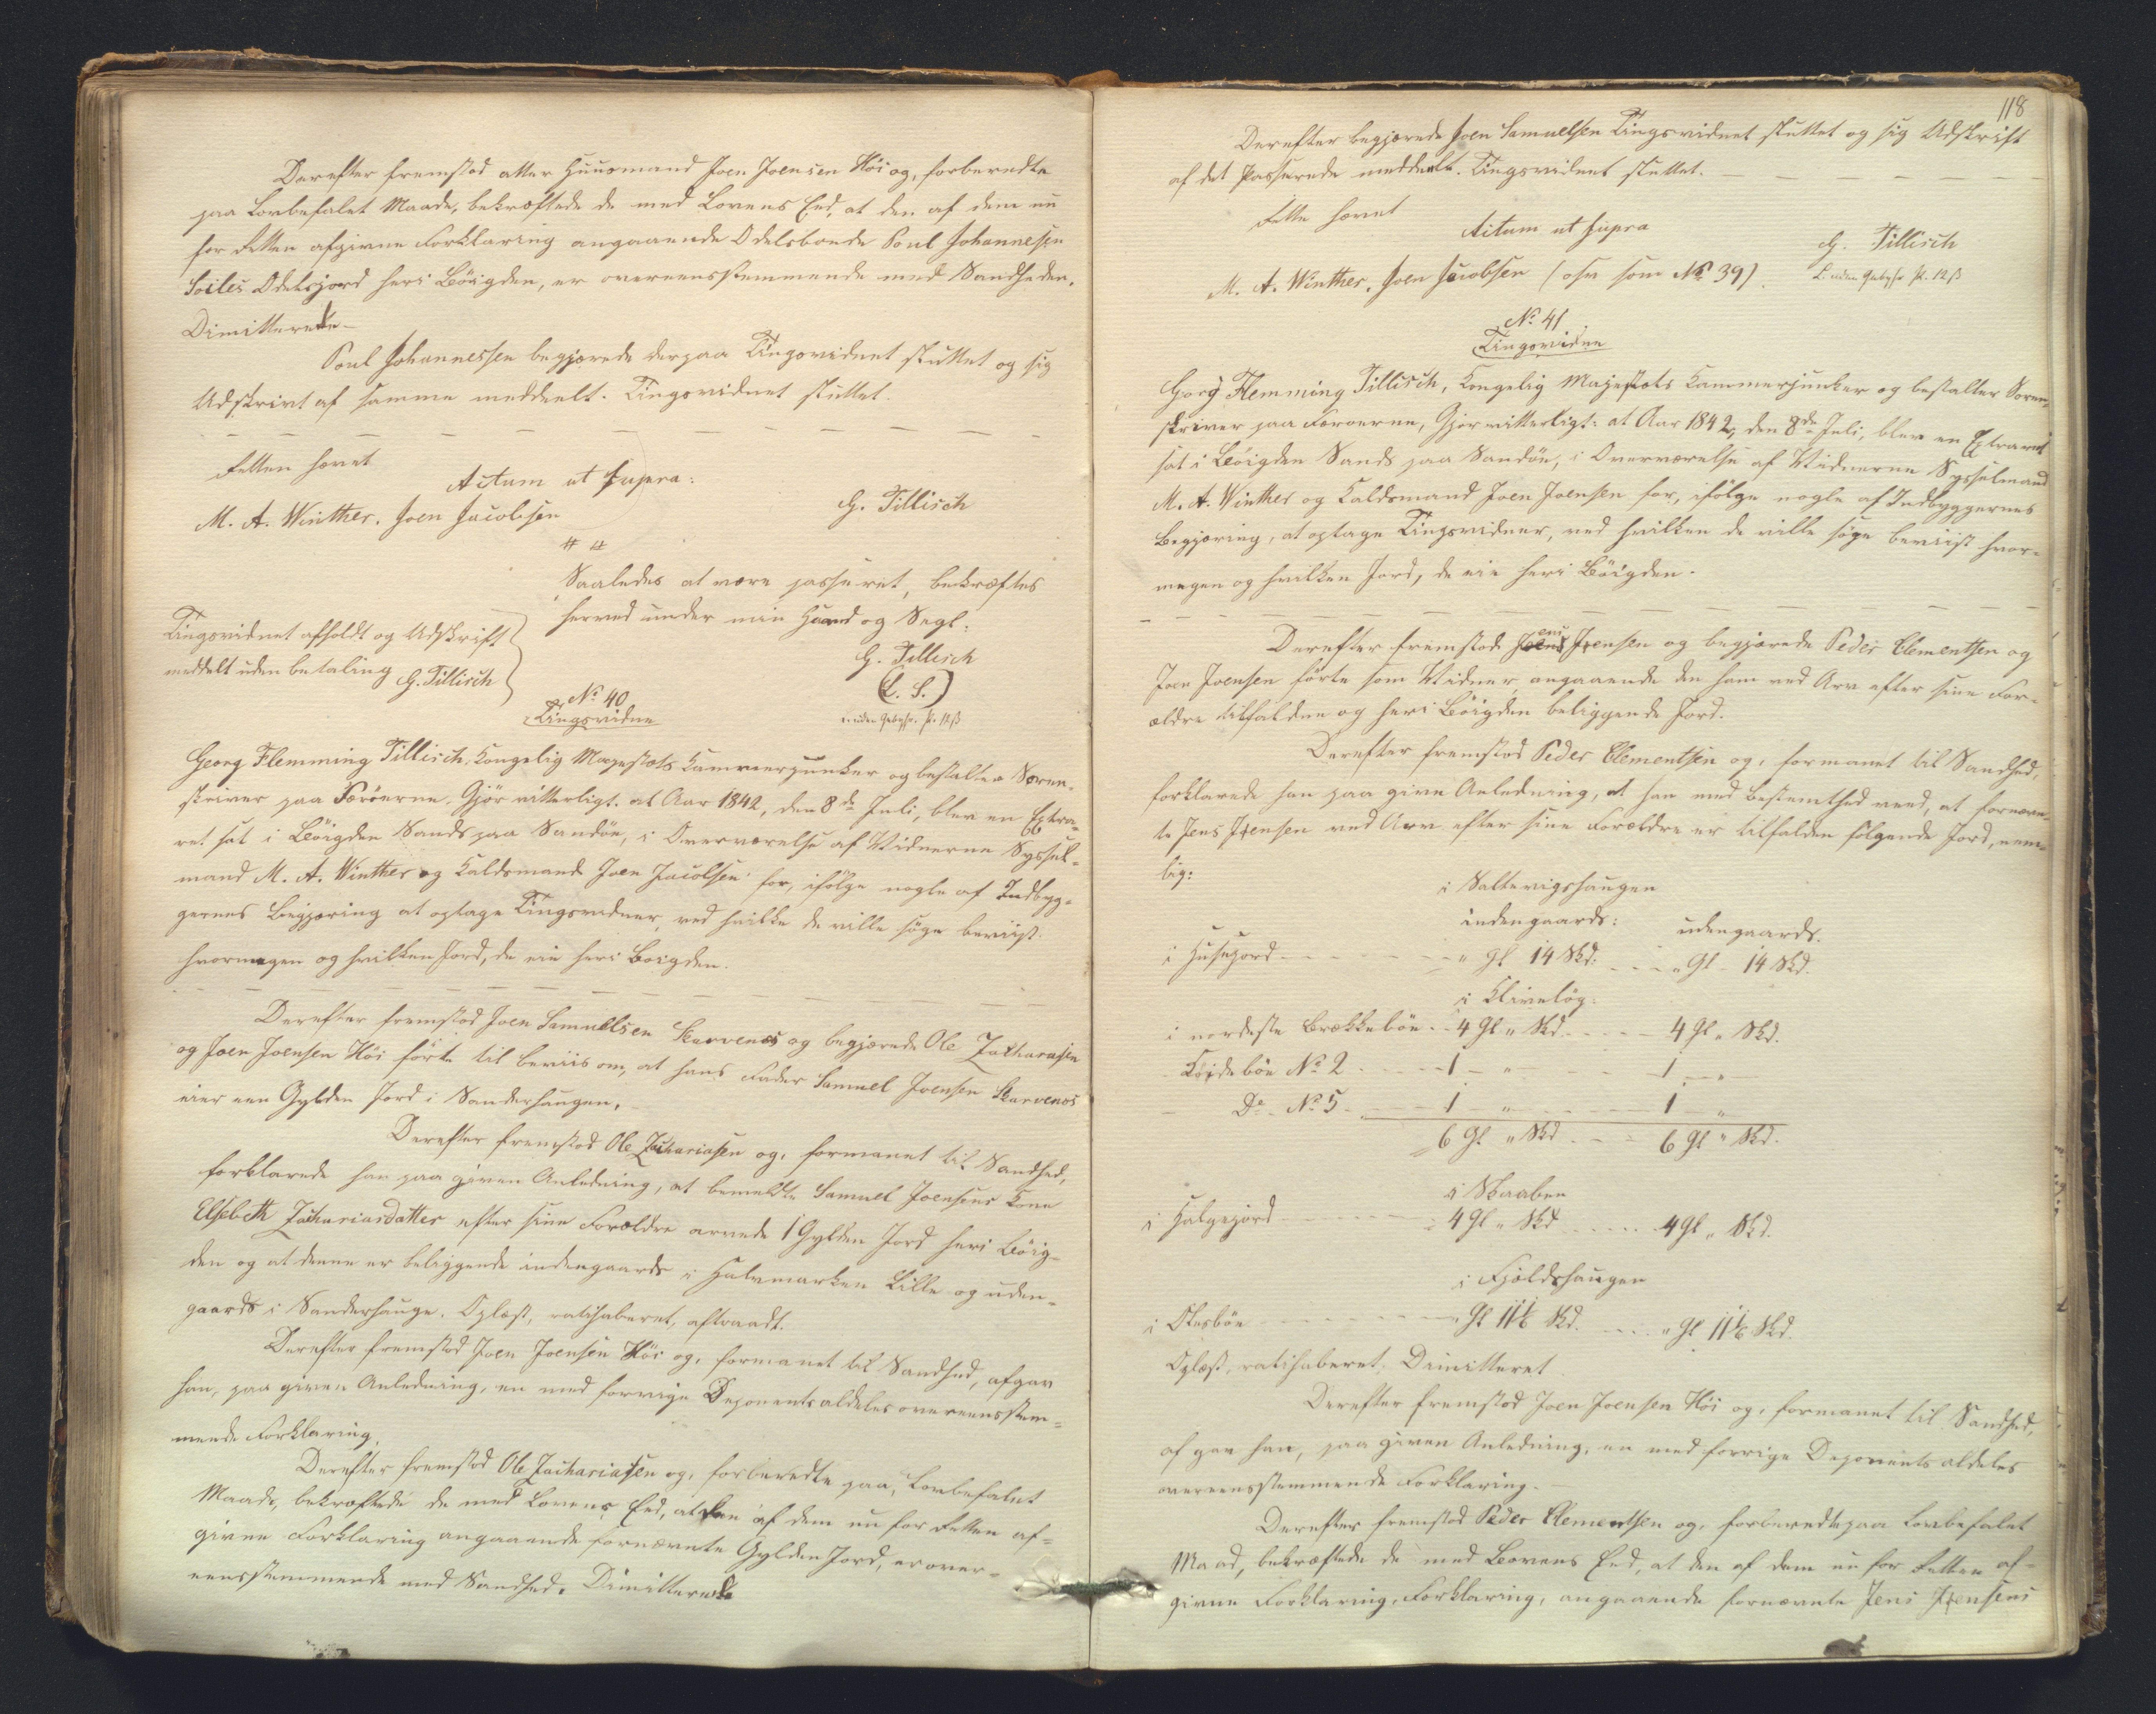 Derefter fremstod atter Huusmand Joen Joensen Höi og, forberedte
paa Lovbefalet Maade, bekræftede de med Lovens Eed, at den af dem nu
for Retten afgivne Forklaring angaaende Odelsbonde Poul Johannesen
Soiles Odelsjord heri Böigden, er overeensstemmende med Sandheden.
Dimitterede
Poul Johannessen begjærede derpaa Tingsvidnet sluttet og sig
Udskrivt af samme meddeelt. Tingsvidnet sluttet.
Retten hævet
Actum ut supra:
M. A. Winther. Joen Jacobsen
G. Tillisch
Saaledes at være passeret, bekræftes
herved under min Haand og Segl:
G. Tillisch
(L. S.)
Tingsvidnet afholdt og Udskrift
meddelt uden betaling G. Tillisch
No 40
Tingsvidne
Georg Flemming Tillisch, Kongelig Majestæts Kammerjunker og bestalter Soren-
skriver paa Færöerne, Gjör vitterligt: at Aar 1842, den 8de Juli, blev en Extra-
ret sat i Böigden Sands paa Sandöe, i Overværelse af Vidnerne Syssel-
mand M. A. Winther og Kaldsmand Joen Jacobsen for, ifölge nogle af Indbyg-
gernes Begjæring at optage Tingsvidner, ved hvilke de ville söge beviist
hvormegen og hvilken Jord, de eie heri Boigden.
Derefter fremstod Joen Samuelsen Skarvenes og begjærede Ole Zachariasen
og Joen Joensen Höi förte til beviis om, at hans Fader Samuel Joensen Skarvenes
eier een Gylden Jord i Sanderhaugen.
Derefter fremstod Ole Zachariasen og, formanet til Sandhed,
forklarede han paa given Anledning, at bemeldte Samuel Joensens Kone
Elsebeth Zachariasdatter efter sine Forældre arvede 1 Gylden Jord heri Böig-
den og at denne er beliggende indengaards i Halvmarken Lille og uden-
gaards i Sanderhauge. Oplæst, ratihaberet, aftraadt.
Derefter fremstod Joen Joensen Höi og, formanet til Sandhed, afgav
han, paa given Anledning, en med forrige Deponents aldeles overeensstem-
mende Forklaring.
Derefter fremstod Ole Zachariasen og, forberedte paa, Lovbefalet
Maade, bekræftede de med Lovens Eed, at den af dem nu for Retten af-
givne Forklaring angaaende fornævnte Gylden Jord, er over-
eensstemmende med Sandhed. Dimitterede
118
Derefter begjærede Joen Samuelsen Tingsvidnet sluttet og sig Udskrift
af det Passerede meddeelt. Tingsvidnet sluttet.
Rette hævet
Actum ut supra
G. Tillisch
M. A. Winther. Joen Jacobsen (osv som No 39).
No 41
Tingsvidne
Georg Flemming Tillisch, Kongelig Majestæts Kammerjunker og bestalter Soren-
skriver paa Færoerne, Gjör vitterligt: at Aar 1842, den 8de Juli, blev en Extraret
sat i Böigden Sands paa Sandöe, i Overværelse af Vidnerne Sysselmand
M. A. Winther og Kaldsmand Joen Joensen for, ifölge nogle af Indbyggernes
Begjæring, at optage Tingsvidner, ved hvilken de ville söge beviist hvor-
megen og hvilken Jord, de eie heri Böigden.
Derefter fremstod Jens Jensen og begjærede Peder Clementsen og
Joen Joensen förte som Vidner, angaaende den ham ved Arv efter sine For-
ældre tilfaldne og heri Böigden beliggende Jord.
Derefter fremstod Peder Clementsen og, formanet til Sandhed,
forklarede han paa given Anledning, at han med bestemthed veed, at fornævn-
te Jens Jensen ved Arv efter sine Forældre er tilfalden fölgende Jord, nem-
lig:
i Saltevigshaugen
indengaards: udengaards.
i Husejord - - - " Gl 14 Skd. - - - " Gl - 14 Skd.
i Kliveløg.
i nordeste Brekkeböe - 4 Gl " Skd. - - - 4 Gl " Skd.
Koideböe No 2 - - - 1 - " - - - 1 - "
Do No 5 - - - 1 - " - - - 1 - "
6 Gl " Skd - - - 6 Gl " Skd.
i Skaaben
i Halgejord - - - 4 Gl " Skd - - - 4 Gl " Skd.
i Fjöldshaugen
i Olesböe - - - " Gl 11 1/6 Skd. - - - " Gl 11 1/6 Skd.
Oplæst, ratihaberet. Dimitteret
Derefter fremstod Joen Joensen Höi og, formanet til Sandhed,
afgav han, paa given Anledning, en med forrige Deponents aldeles
overeensstemmende Forklaring.
Derefter fremstod Peder Clementsen og, forberedte paa Lovbefalet
Maad, bekræftede de med Lovens Eed, at den af dem nu for Retten af-
givne Forklaring, Forklaring, angaaende fornævnte Jens Jensens